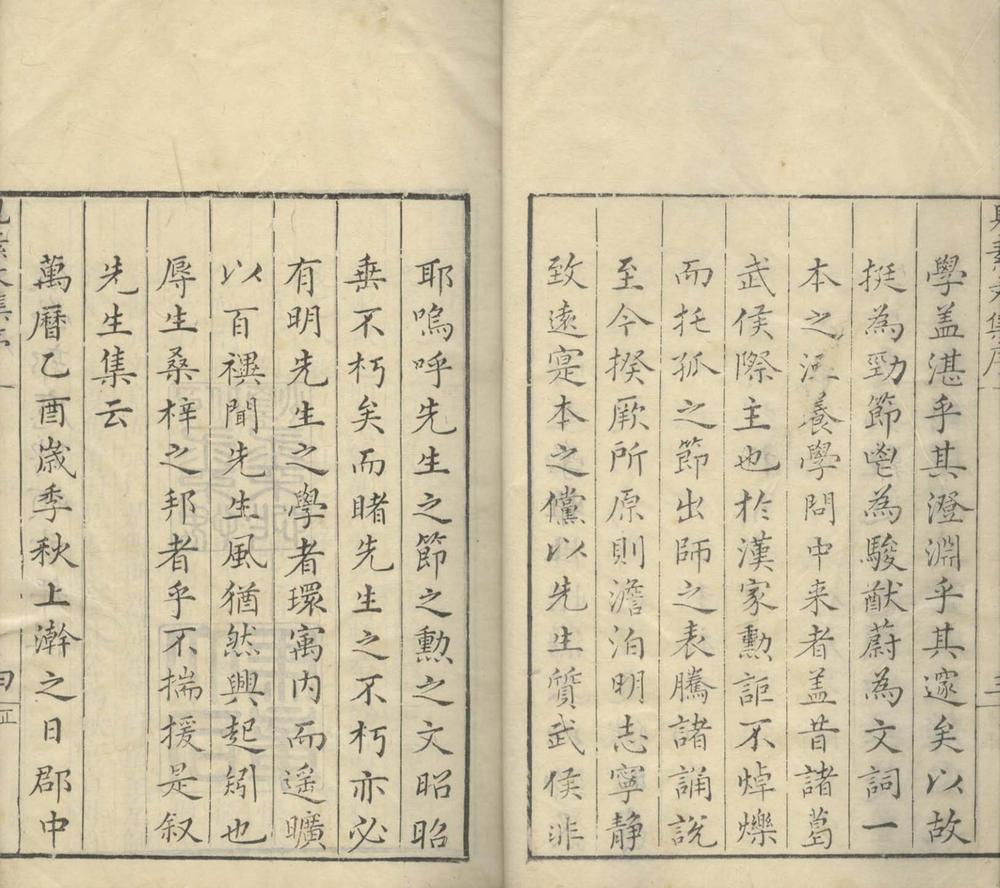 學盖湛乎其澄淵乎其邃矣以故
挺為勁節鬯為駿猷蔚為文詞一
本之涵養學問中来者盖昔諸葛
武侯際主也於漢家勳詎不焯爍
而托孤之節出師之表騰諸誦說
至今揆厥所原則澹泊明志寧静
致遠寔本之儻以先生質武侯非
耶嗚呼先生之節之勲之文昭昭
垂不朽矣而睹先生之不朽亦必
有明先生之學者環寓内而遥曠
以百禩聞先生風猶然興起矧也
辱生桑梓之邦者乎不揣援是叙
先生集云
萬曆乙酉歲季秋上澣之日郡中